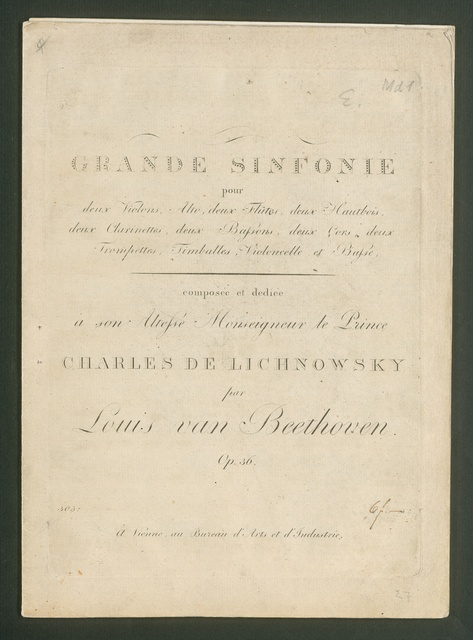 E.
GRANDE SINFONIE
pour
deux Violons, Alto, deux Flûtes, deux Hautbois,
deux Clarinettes, deux Bassons, deux Cors, deux
Trompettes, Timballes, Violoncelle et Basse,
composée et dediée
a son Altesse Monseigneur le Prince
CHARLES DE LICHNOWSKY
par
Louis van Beethoven.
Op. 36.
305.
A Vienne, au Bureau d'Arts et d'Industrie,
27